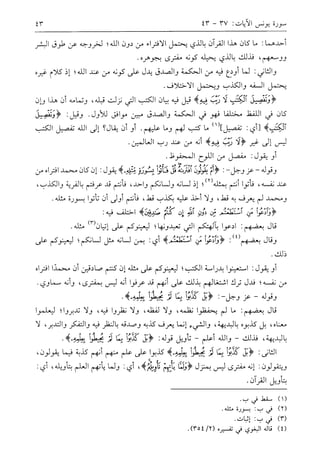 سورة يونس الآيات: ٣٧ - ٤٣
٤٣
أحدهما: ما كان هذا القرآن بالذي يحتمل الافتراء من دون الله؛ لخروجه عن طوق البشر
ووسعهم، فذلك بالذي يحيله كونه مفترى بجوهره.
والثاني: لما أودع فيه من الحكمة والصدق يدل على كونه من عند الله؛ إذ كلام غيره
يحتمل السفه والكذب ويحتمل الاختلاف.
﴿وَتَفْصِيلَ ٱلْكِتَٰبِ لَا رَيْبَ فِيهِ﴾ قيل فيه بيان الكتب التي نزلت قبله، وتمامه أن هذا وإن
كان في اللفظ مختلفا فهو في الحكمة والصدق مبين موافق للأول. وقيل: ﴿وَتَفْصِيلَ
ٱلْكِتَٰبِ﴾ [أي: تفصيل](١) ما كتب لهم وما عليهم. أو أن يقال؟ إلى الله تفصيل الكتب
ليس إلى غير ﴿لَا رَيْبَ فِيهِ﴾ أنه من عند رب العالمين.
أو يقول: مفصل من اللوح المحفوظ.
وقوله - عز وجل -: ﴿أَمْ يَقُولُونَ ٱفْتَرَىٰهُ قُلْ فَأْتُوا۟ بِسُورَةٍ مِّثْلِهِ﴾ يقول: إن كان محمد افتراه من
عند نفسه، فأتوا أنتم بمثله(٢)؛ إذ لسانه ولسانكم واحد، فأنتم قد عرفتم بالفرية والكذب،
ومحمد لم يعرف به قط، ولا أخذ عليه بكذب قط، فأنتم أولى أن تأتوا بسورة مثله.
﴿وَٱدْعُوا۟ مَنِ ٱسْتَطَعْتُم مِّن دُونِ ٱللَّهِ إِن كُنتُمْ صَٰدِقِينَ﴾ اختلف فيه:
قال بعضهم: ادعوا بآلهتكم التي تعبدونها؛ ليعينوكم على إتيان(٣) مثله.
وقال بعضهم(٤): ﴿وَٱدْعُوا۟ مَنِ ٱسْتَطَعْتُم﴾ أي: بمن لسانه مثل لسانكم؛ ليعينوكم على
ذلك.
أو يقول: استعينوا بدراسة الكتب؛ ليعينوكم على مثله إن كنتم صادقين أن محمدًا افتراه
من نفسه؛ فدل ترك اشتغالهم بذلك على أنهم قد عرفوا أنه ليس بمفترى، وأنه سماوي.
وقوله - عز وجل -: ﴿بَلْ كَذَّبُوا۟ بِمَا لَمْ يُحِيطُوا۟ بِعِلْمِهِ﴾.
قال بعضهم: ما لم يحفظوا نظمه، ولا لفظه، ولا نظروا فيه، ولا تدبروا؛ ليعلموا
معناه، بل كذبوه بالبديهة، والشيء إنما يعرف كذبه وصدقه بالنظر فيه والتفكر والتدبر، لا
بالبديهة، فذلك - والله أعلم - تأويل قوله: ﴿بَلْ كَذَّبُوا۟ بِمَا لَمْ يُحِيطُوا۟ بِعِلْمِهِ﴾.
الثاني: ﴿بَلْ كَذَّبُوا۟ بِمَا لَمْ يُحِيطُوا۟ بِعِلْمِهِ﴾ كذبوا على علم منهم أنهم كذبة فيما يقولون،
ويتقولون: إنه مفترى ليس بمنزل ﴿وَلَمَّا يَأْتِهِمْ تَأْوِيلُهُ﴾، أي: ولما يأتهم العلم بتأويله، أي:
بتأويل القرآن.
(١) سقط في ب.
(٢) في ب: بسورة مثله.
(٣) في ب: إثبات.
(٤) قاله البغوي في تفسيره (٣٥٤/٢).